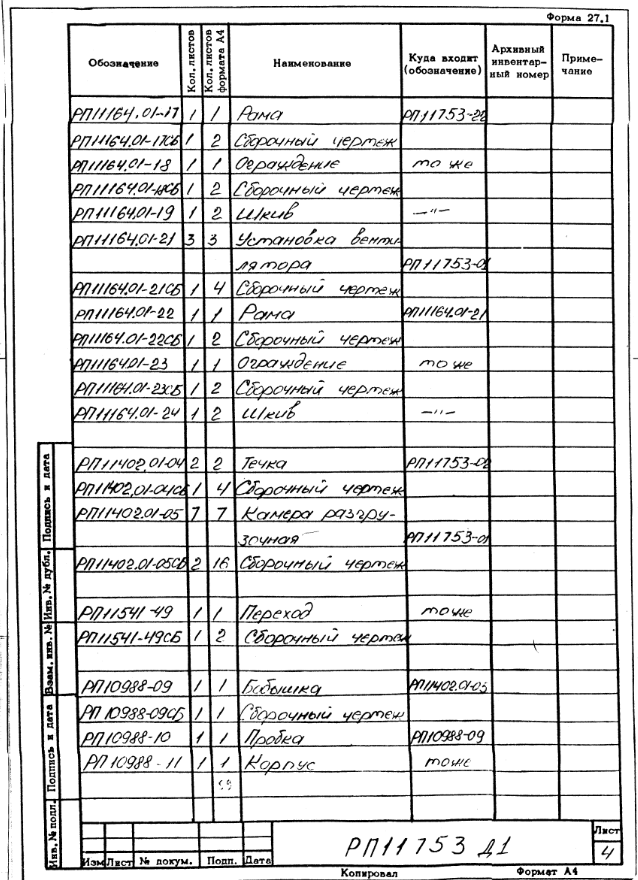 Форма 27.1
Обозначение Кол. листов Кол. листов формата А4 Наименование Куда входит (обозначение) Архивный инвентар- ный номер Приме- чание
РП11164.01-17 1 1 Рама РП11753-22
РП11164.01-17СБ 1 2 Сборочный чертеж
РП11164.01-18 1 1 Ограждение то же
РП11164.01-18СБ 1 2 Сборочный чертеж
РП11164.01-19 1 2 Шкив —"—
РП11164.01-21 3 3 Установка венти-
лятора РП11753-01
РП11164.01-21СБ 1 4 Сборочный чертеж
РП11164.01-22 1 1 Рама РП11164.01-21
РП11164.01-22СБ 1 2 Сборочный чертеж
РП11164.01-23 1 1 Ограждение то же
РП11164.01-23СБ 1 2 Сборочный чертеж
РП11164.01-24 1 2 Шкив —"—
РП11402.01-04 2 2 Течка РП11753-02
РП11402.01-04СБ 1 4 Сборочный чертеж
РП11402.01-05 7 7 Камера разгру-
зочная РП11753-01
РП11402.01-05СБ 2 16 Сборочный чертеж
РП11541-49 1 1 Переход то же
РП11541-49СБ 1 2 Сборочный чертеж
РП10988-09 1 1 Бобышка РП11402.01-03
РП10988-09СБ 1 1 Сборочный чертеж
РП10988-10 1 1 Пробка РП10988-09
РП10988-11 1 1 Корпус то же
Инв. № подл. Подпись и дата Взам. инв. № Инв. № дубл. Подпись и дата
Изм Лист № докум. Подп. Дата
РП11753 Д1
Лист
4
Копировал Формат А4